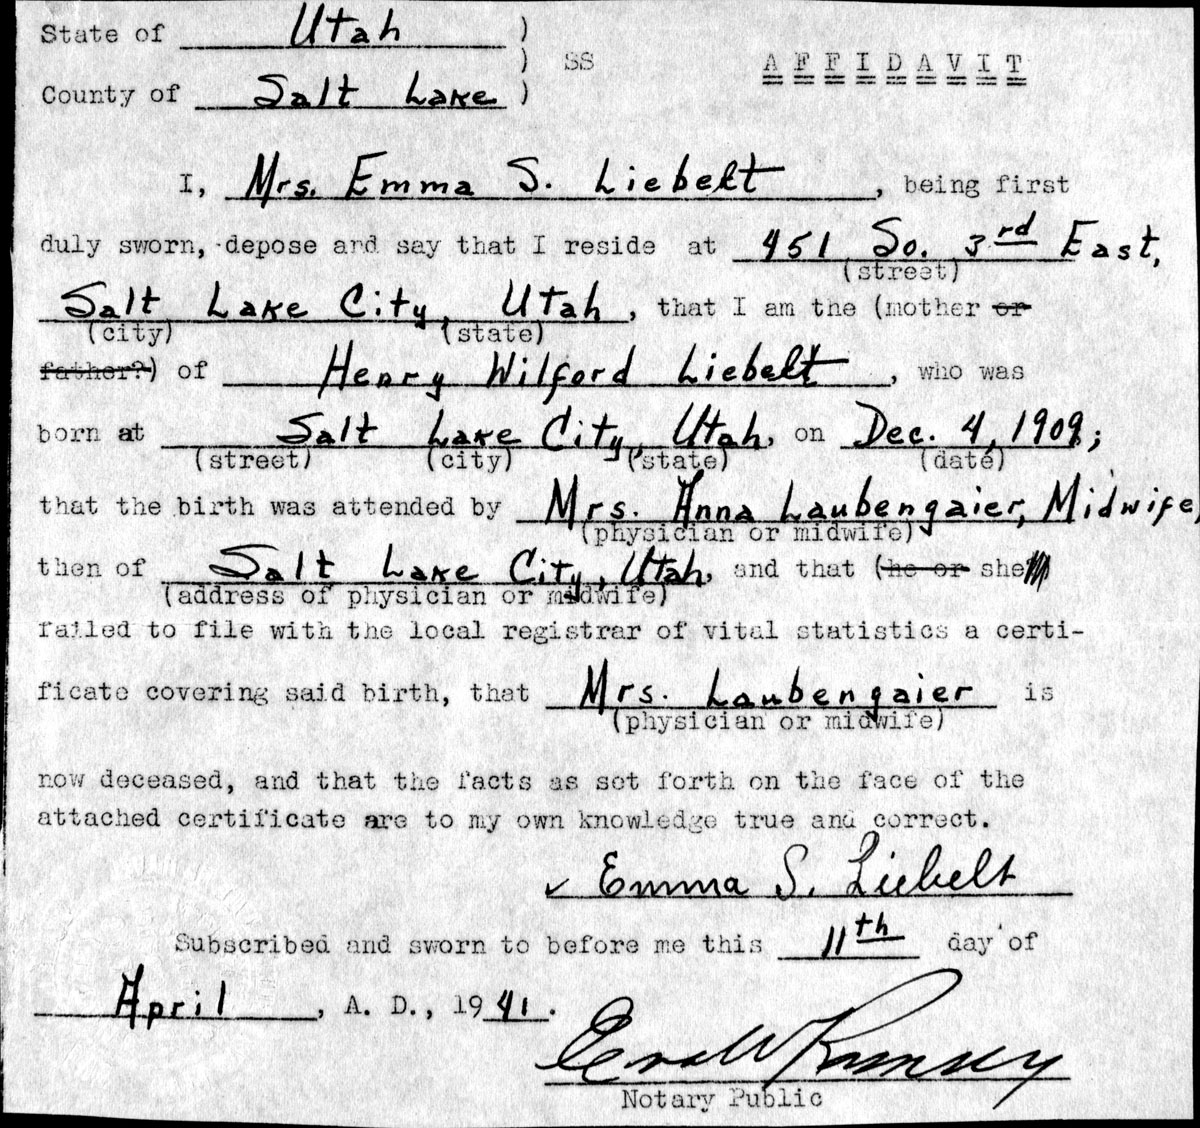 State of Utah )
) SS A F F I D A V I T
County of Salt Lake )
I, Mrs. Emma S. Liebelt, being first
duly sworn, depose and say that I reside at 451 So. 3rd East,
(street)
Salt Lake City, Utah, that I am the (mother or
(city) (state)
father?) of Henry Wilford Liebelt, who was
born at Salt Lake City, Utah, on Dec. 4, 1909;
(street) (city) (state) (date)
that the birth was attended by Mrs. Anna Laubengaier, Midwife,
(physician or midwife)
then of Salt Lake City, Utah, and that (he or she
(address of physician or midwife)
failed to file with the local registrar of vital statistics a certi-
ficate covering said birth, that Mrs. Laubengaier is
(physician or midwife)
now deceased, and that the facts as set forth on the face of the
attached certificate are to my own knowledge true and correct.
✓ Emma S. Liebelt
Subscribed and sworn to before me this 11th day of
April, A. D., 1941.
Ramsey
Notary Public